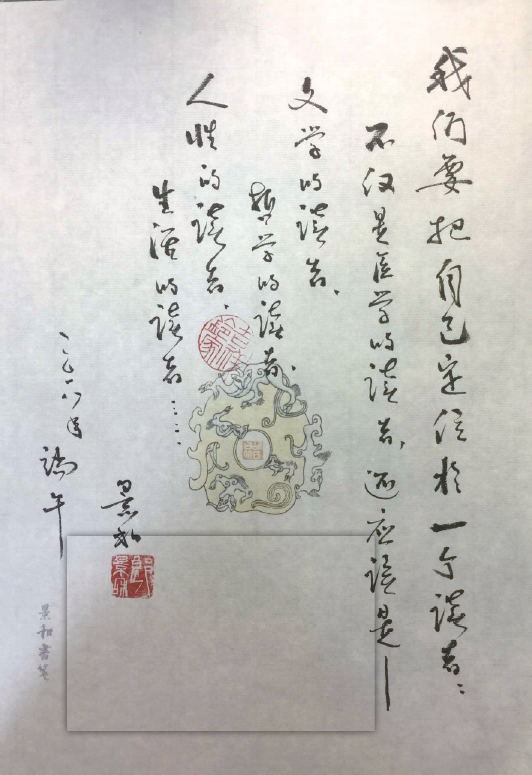 我们要把自己定位于一个读者：
不仅是医学的读者，还应该是——
文学的读者、
哲学的读者、
人性的读者、
生活的读者……
景和
二〇一八年 端午
景和书笺